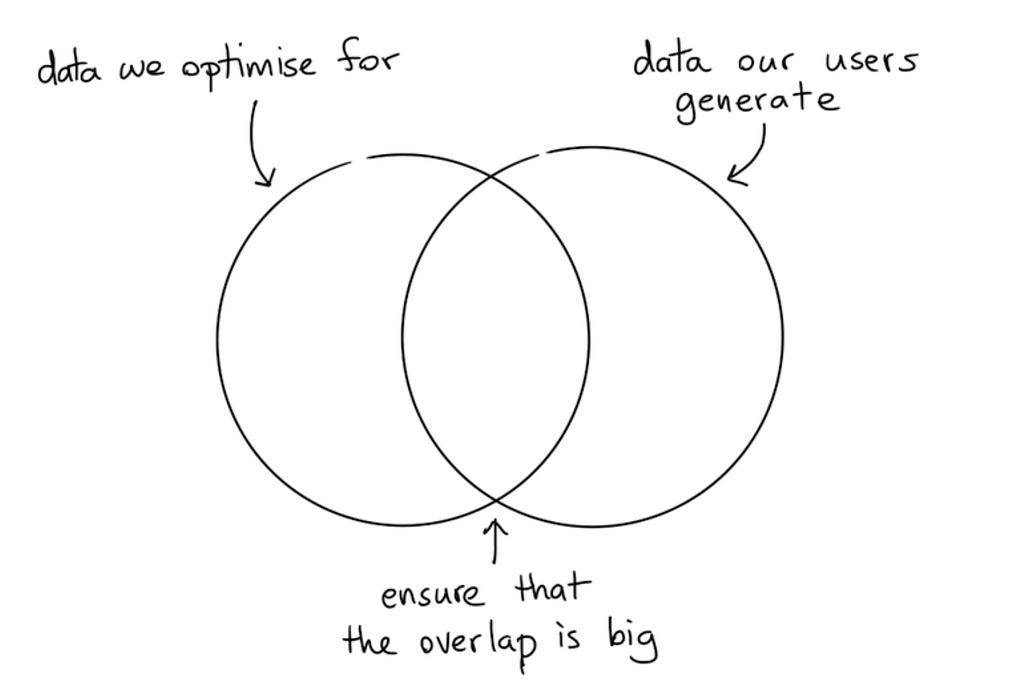 data we optimise for
data our users
generate
ensure that
the overlap is big